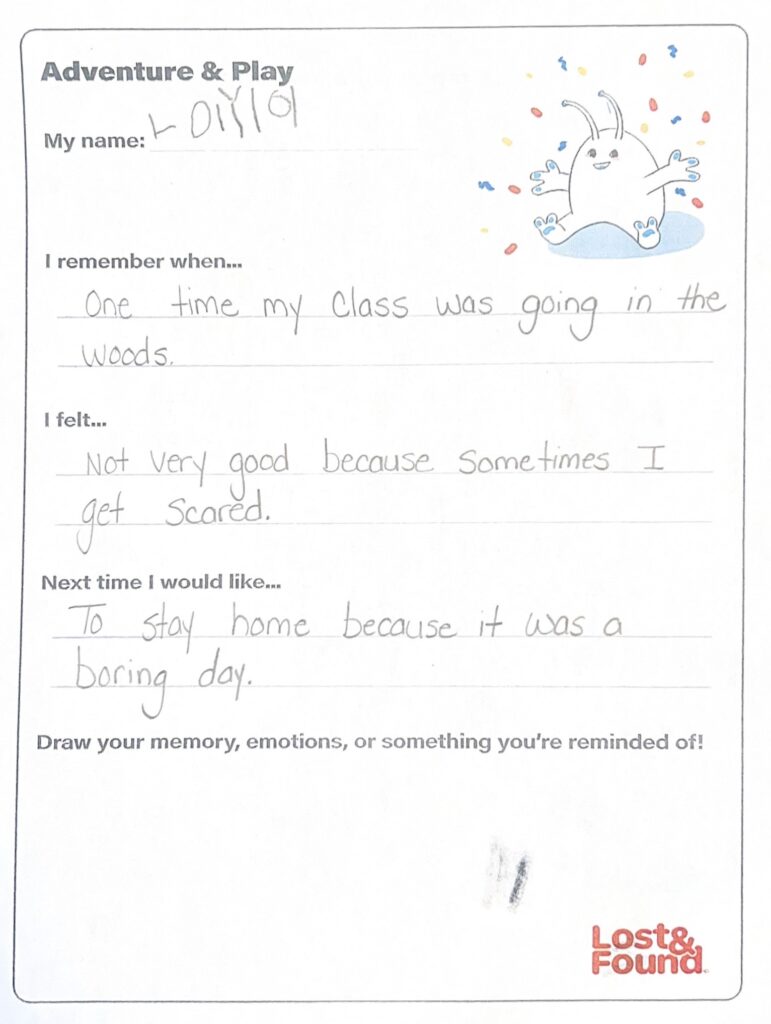 Adventure & Play
My name:
I remember when...
One time my class was going in the
woods.
I felt...
Not very good because sometimes I
get scared.
Next time I would like...
To stay home because it was a
boring day.
Draw your memory, emotions, or something you're reminded of!
Lost&
Found